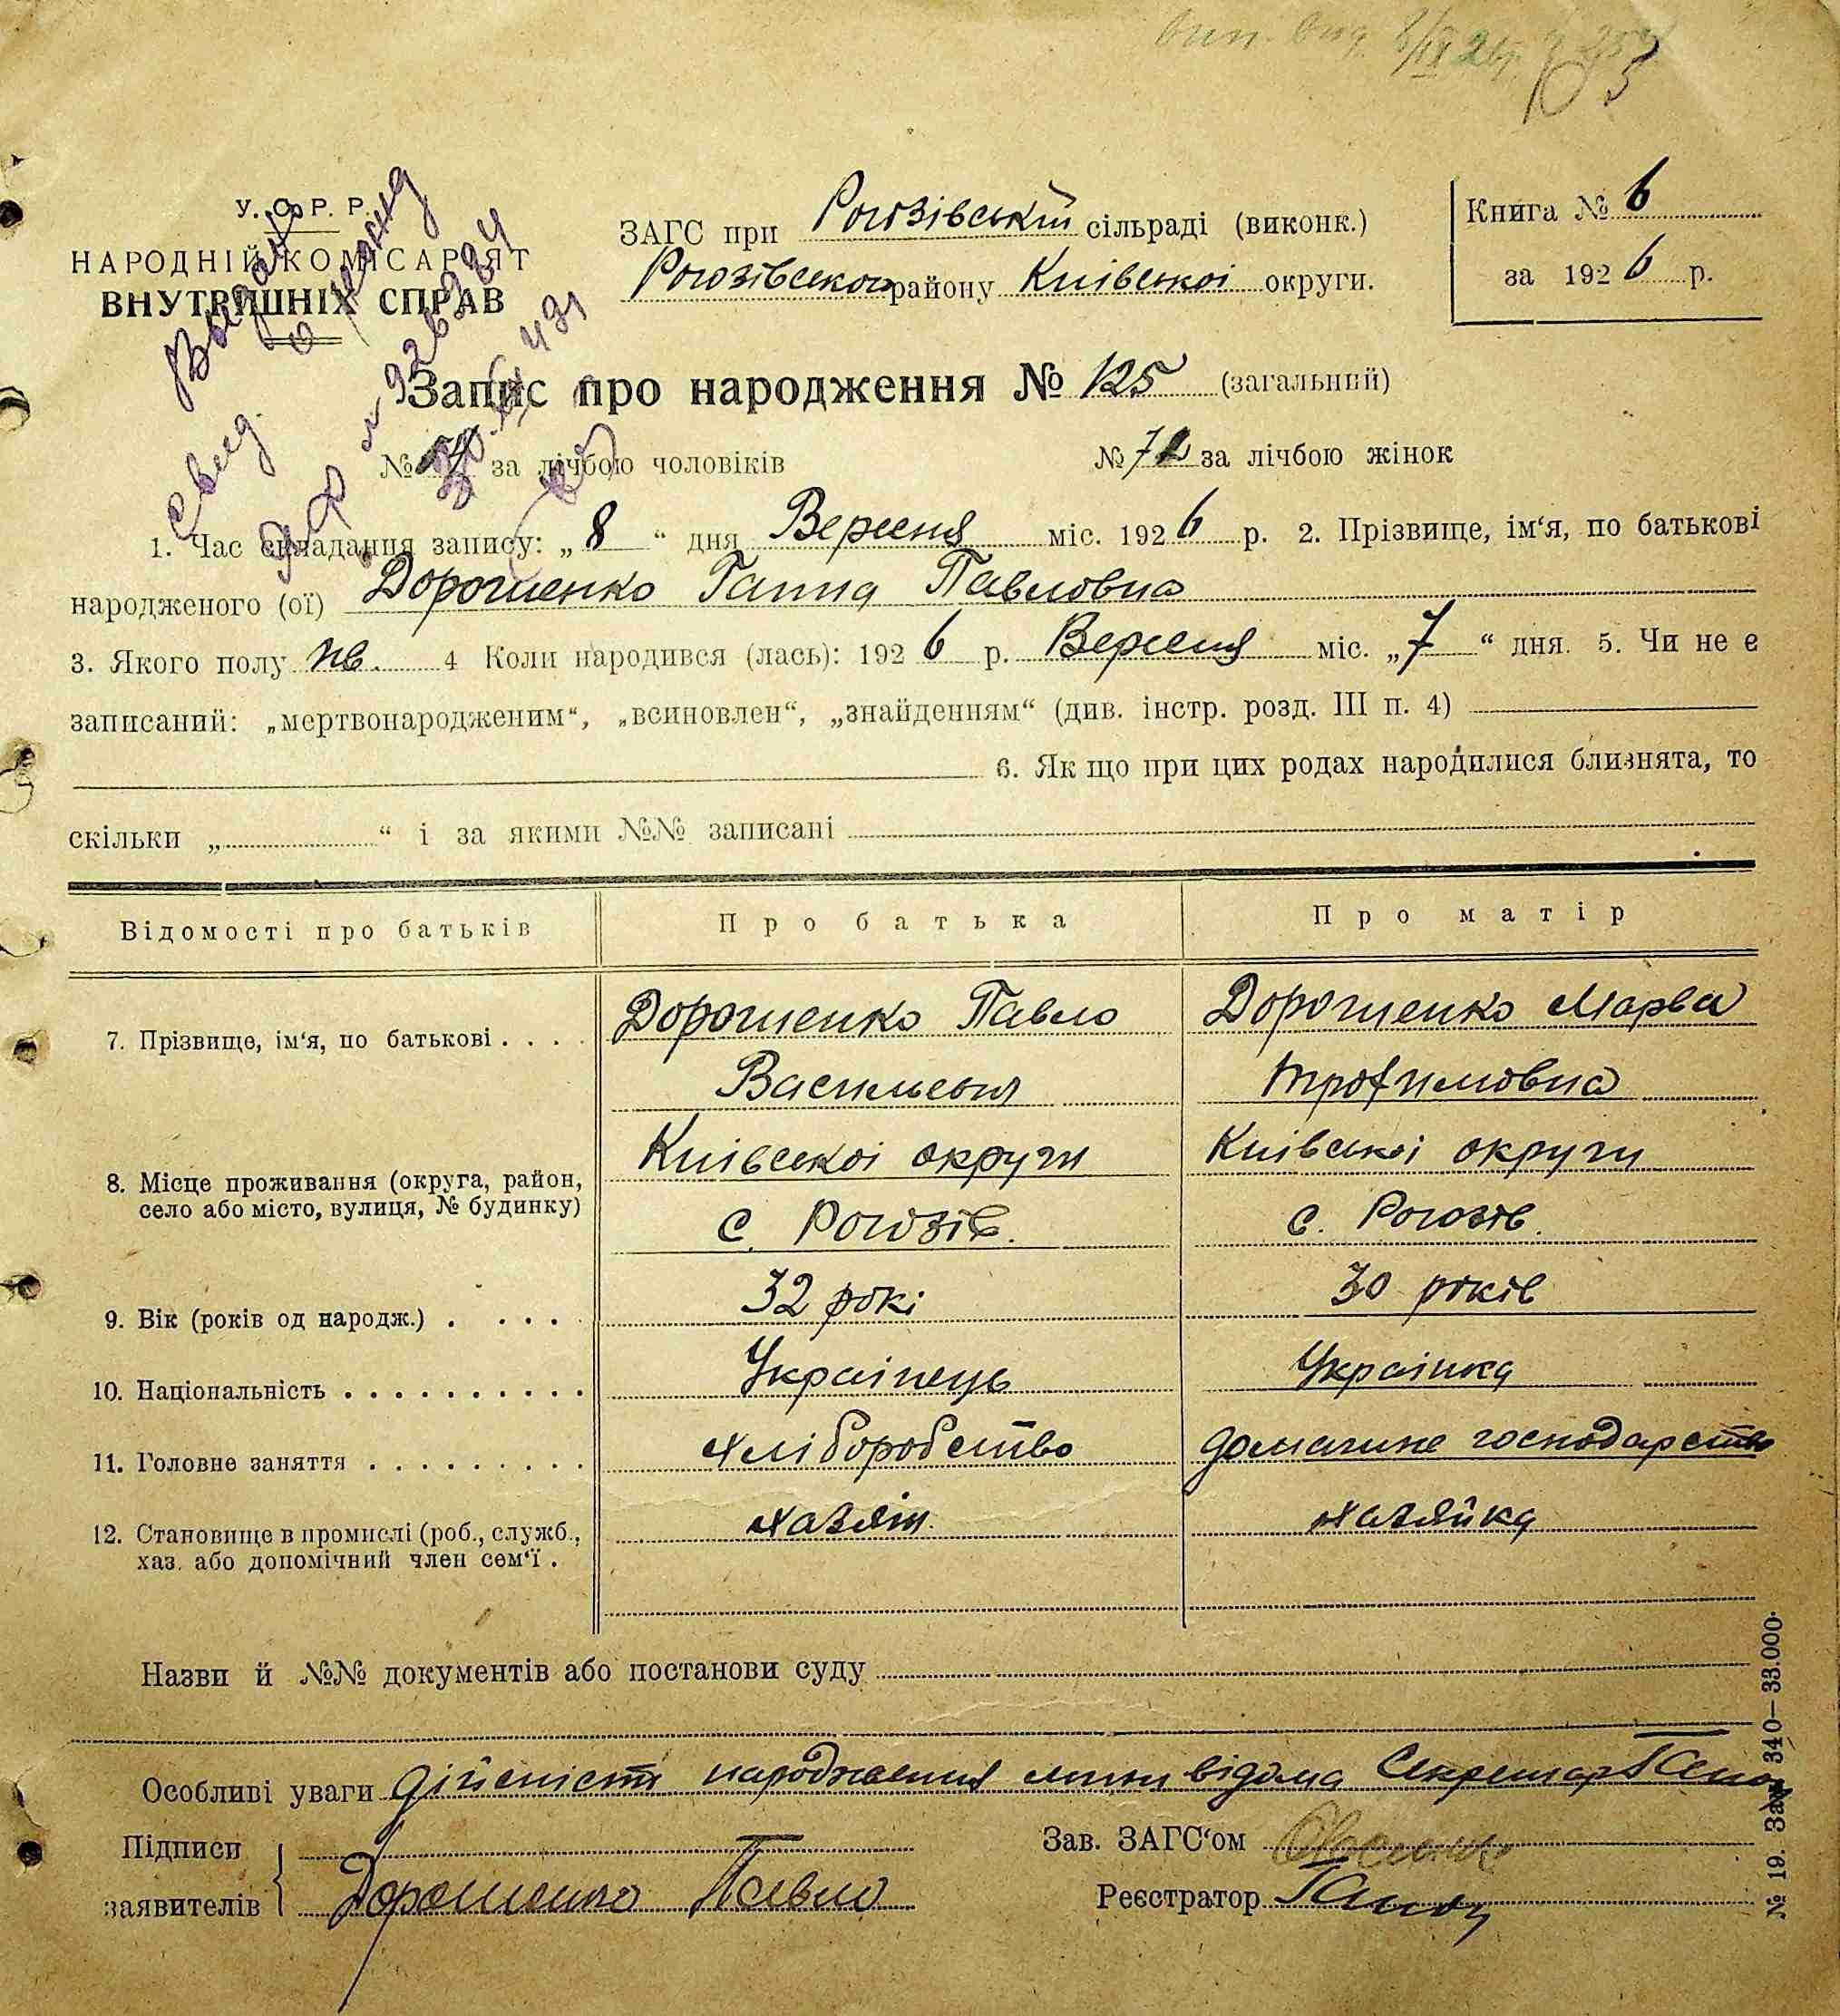 вип. вид. 8/IX 26 р.
У. С. Р. Р.
НАРОДНІЙ КОМІСАРІЯТ
ВНУТРІШНІХ СПРАВ
ЗАГС при Рогозівській сільраді (виконк.)
Рогозівського району Київської округи.
Книга № 6
за 1926 р.
Запис про народження № 125 (загальний)
№ за лічбою чоловіків
№ 72 за лічбою жінок
1. Час складання запису: „ 8 “ дня Вересня міс. 1926 р. 2. Прізвище, ім‘я, по батькові
народженого (ої) Дорошенко Ганна Павловна
3. Якого полу жв. 4 Коли народився (лась): 1926 р. Вересня міс. „ 7 “ дня. 5. Чи не є
записаний: „мертвонародженим“, „всиновлен“, „знайденням“ (див. інстр. розд. III п. 4)
6. Як що при цих родах народилися близнята, то
скільки „ “ і за якими №№ записані
Відомості про батьків
Про батька
Про матір
7. Прізвище, ім‘я, по батькові . . . .
Дорошенко Павло
Васильевич
Дорошенко Марва
Трофимовна
8. Місце проживання (округа, район,
село або місто, вулиця, № будинку)
Київської округи
с. Рогозів.
Київської округи
с. Рогозів.
9. Вік (років од народж.) . . . . .
32 рокі
30 років
10. Національність . . . . . . . . . .
Українець
Українка
11. Головне заняття . . . . . . . . .
хліборобство
домашне господарство
12. Становище в промислі (роб., служб.,
хаз. або допомічний член сем‘ї .
хазяїн.
хазяйка
Назви й №№ документів або постанови суду
Особливі уваги дійсність народження мини відома Секретар
Підписи
заявителів
Дорошенко Павло
Зав. ЗАГС‘ом
Реєстратор
№ 19. Зак 340—33.000.